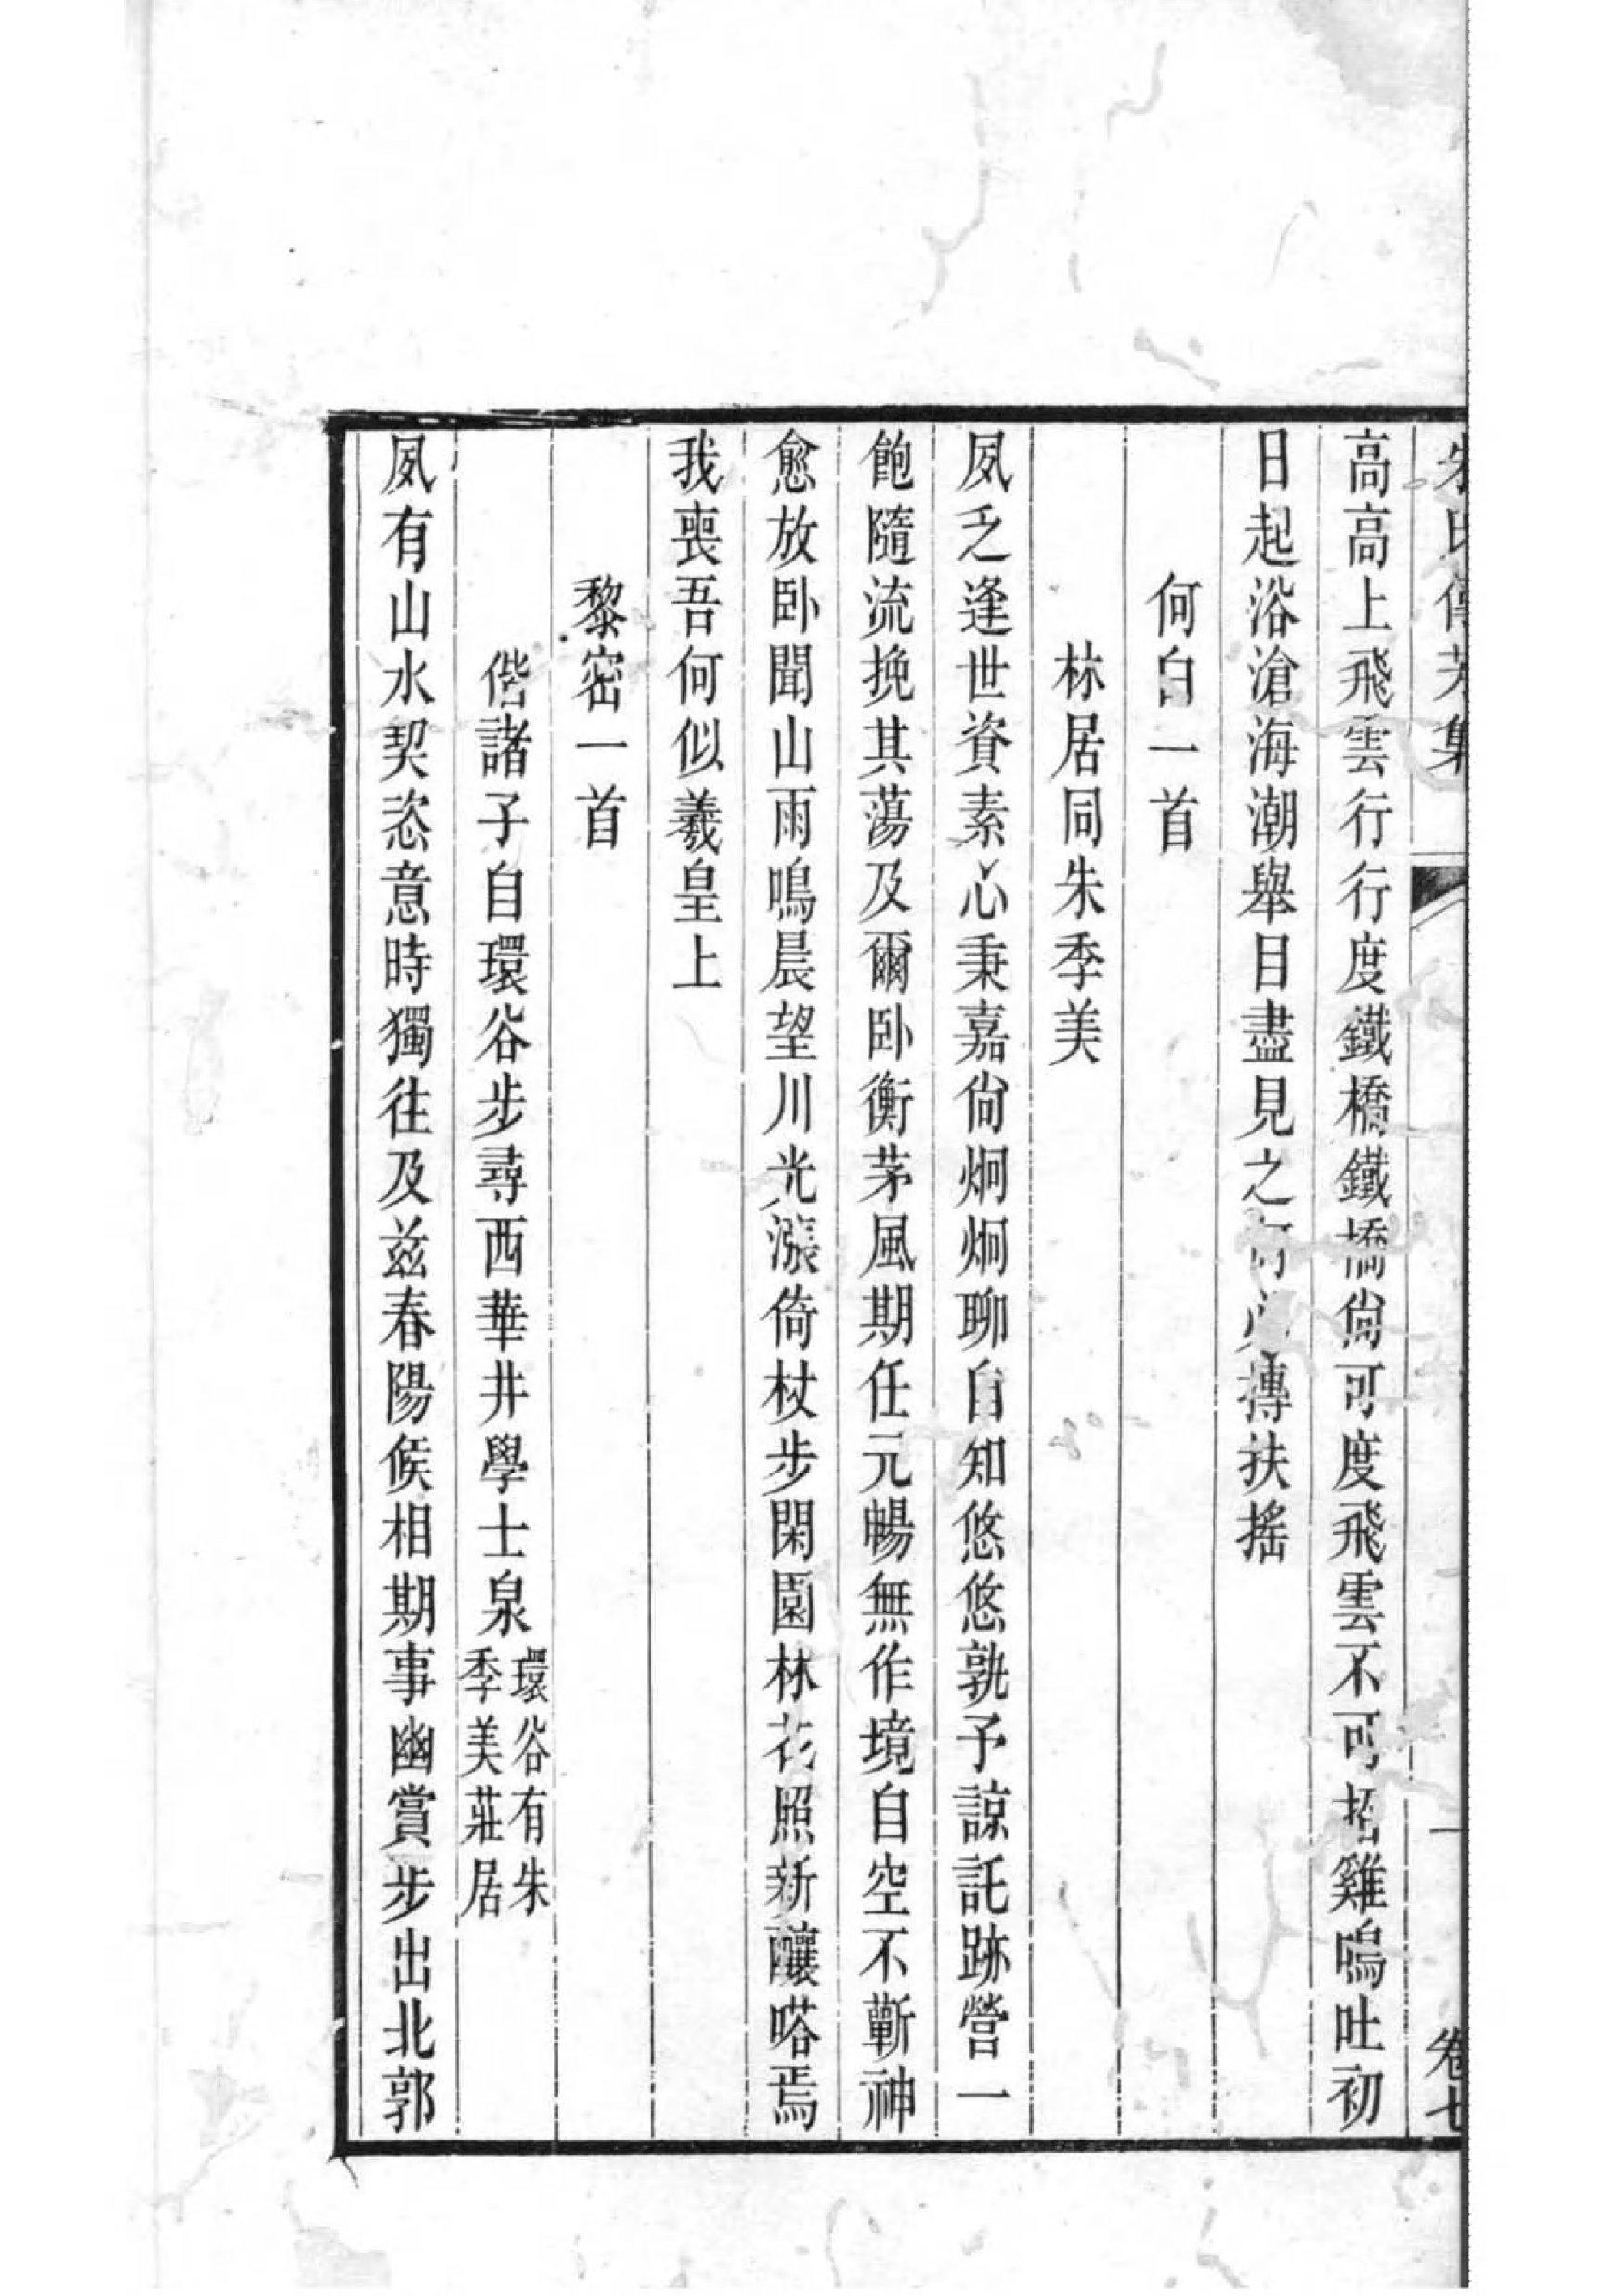 集 一 卷七
高高上飛雲行行度鐵橋鐵橋尙可度飛雲不可招雞鳴吐初
日起浴滄海潮舉目盡見之 摶扶搖
何白一首
林居同朱季美
夙乏逢世資素心秉嘉尙炯炯聊自知悠悠孰予諒託跡營一
飽隨流挽其蕩及爾臥衡茅風期任元暢無作境自空不蘄神
愈放臥聞山雨鳴晨望川光漲倚杖步閑園林花照新釀嗒焉
我喪吾何似羲皇上
黎密一首
偕諸子自環谷步尋西華井學士泉環谷有朱季美莊居
夙有山水契恣意時獨往及兹春陽候相期事幽賞步出北郭